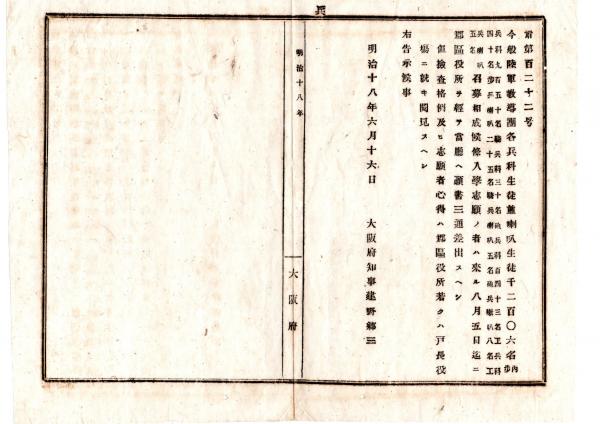 第百二十二号
今般陸軍教導団各兵科生徒並喇叭生徒千二百〇六名内歩
兵科九百五十名騎兵科三十名砲兵科百四十三名工兵科
四十名歩兵喇叭二十五名騎兵喇叭五名砲兵喇叭八名工
兵喇叭五名
召募相成候條入学志願ノ者ハ来ル八月五日迄ニ
郡區役所ヲ経テ當廳ヘ願書三通差出スヘシ
但検査格例及ヒ志願者心得ハ郡區役所若クハ戸長役
場ニ就キ閲見スヘシ
右告示候事
明治十八年六月十六日
大阪府知事建野郷三
明治十八年
大阪府